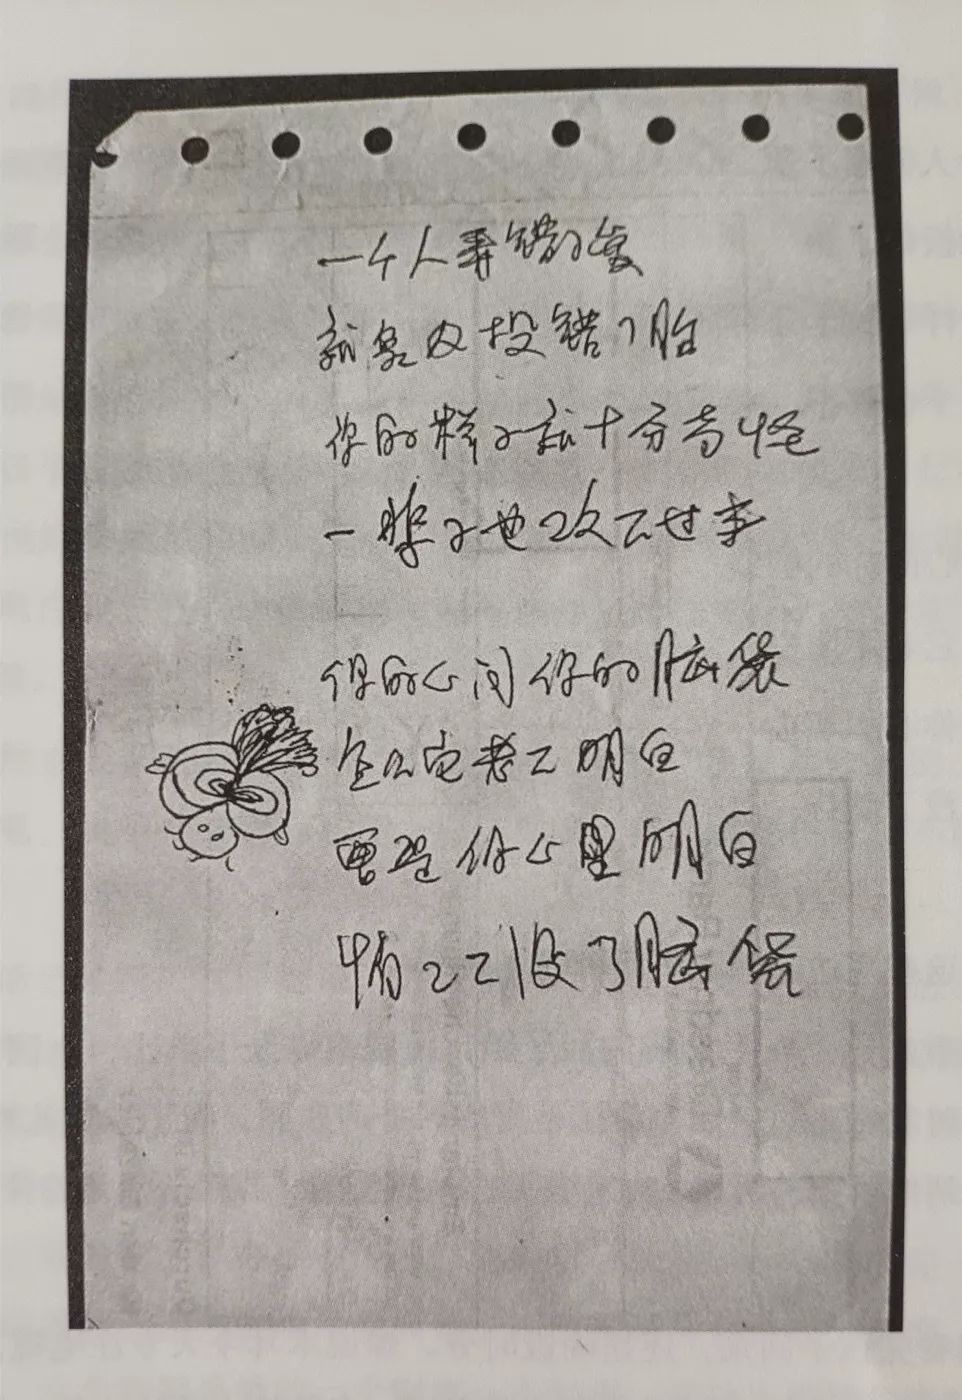 一个人弄错了爱
就象又投错了胎
你的样子就十分奇怪
一辈子也改不过来
你的心问你的脑袋
全心思考不明白
要是你心里明白
怕又不没了脑袋